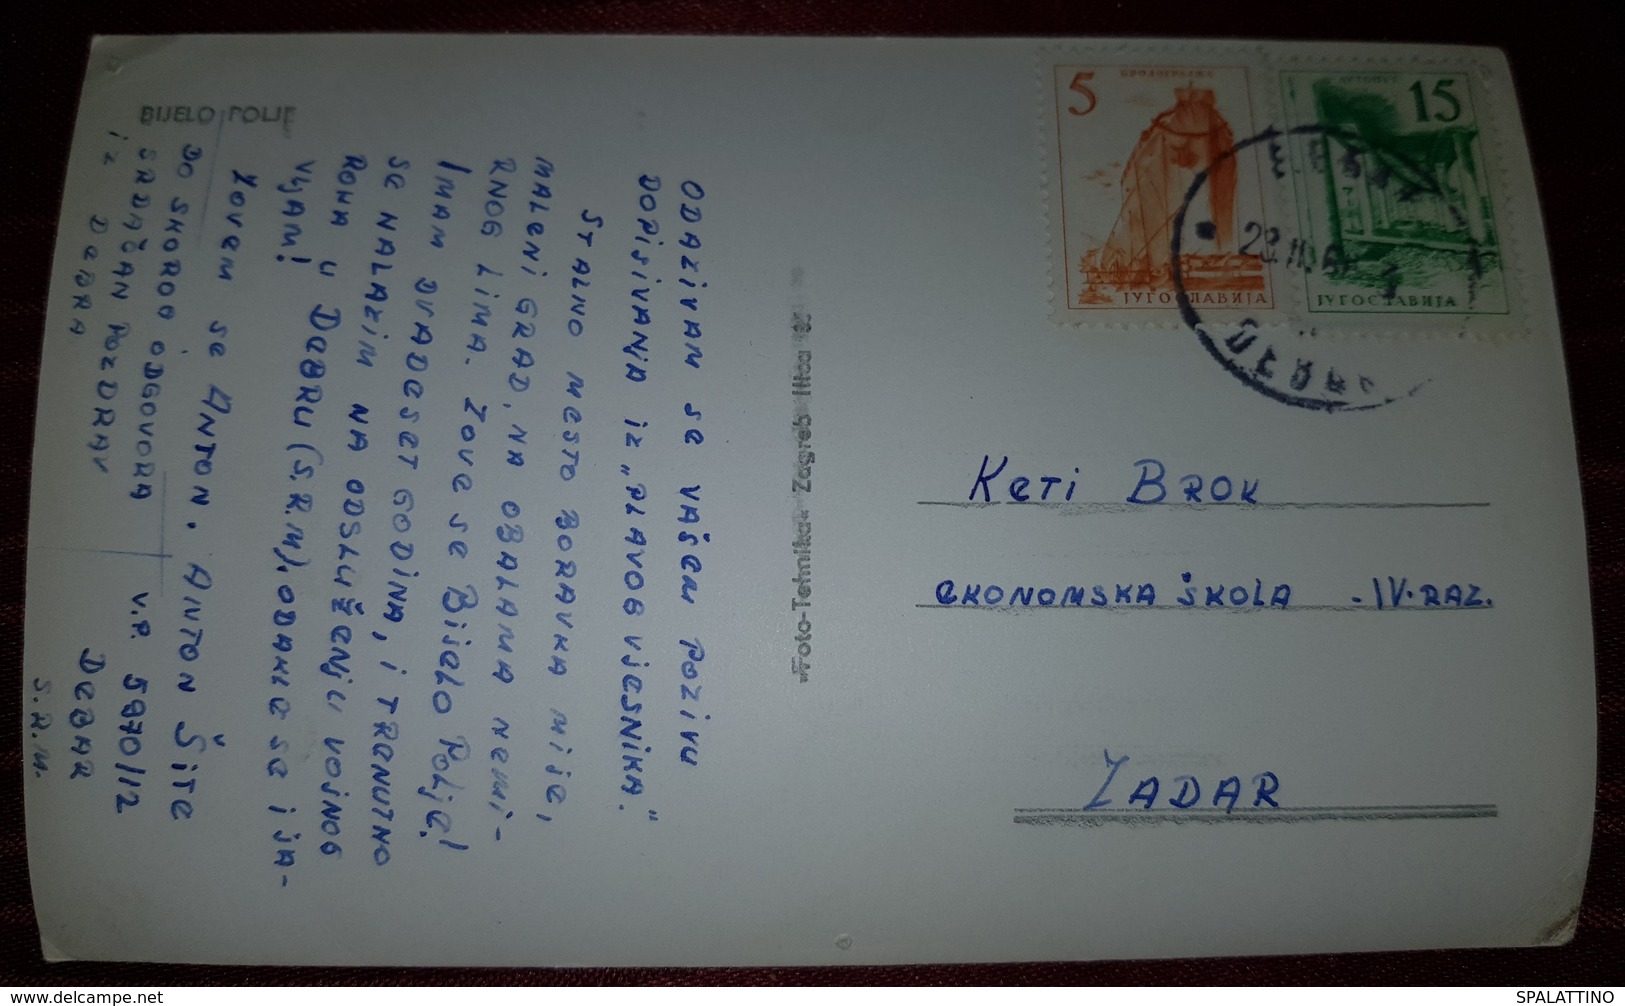 BIJELO POLJE
ODAZIVAM SE VAŠEM POZIVU
DOPISIVANJA IZ „PLAVOG VJESNIKA."
STALNO MESTO BORAVKA MI JE,
MALENI GRAD, NA OBALAMA NEMI-
RNOG LIMA. ZOVE SE BIJELO POLJE!
IMAM DVADESET GODINA, I TRENUTNO
SE NALAZIM NA ODSLUŽENJU VOJNOG
ROKA U DEBRU (S.R.M), ODAKLE SE I JA-
VLJAM!
ZOVEM SE ANTON. ANTON ŠITE
DO SKOROG ODGOVORA V.P. 5970/12
SRDAČAN POZDRAV DEBAR
IZ DEBRA S.R.M.
»Foto-Tehnika« Zagreb Ilica
5
БРОДОГРАДЊА
ЈУГОСЛАВИЈА
15
ЈУГОСЛАВИЈА
DEBAR
KETI BROK
EKONOMSKA ŠKOLA - IV. RAZ.
ZADAR
delcampe.net
SPALATTINO